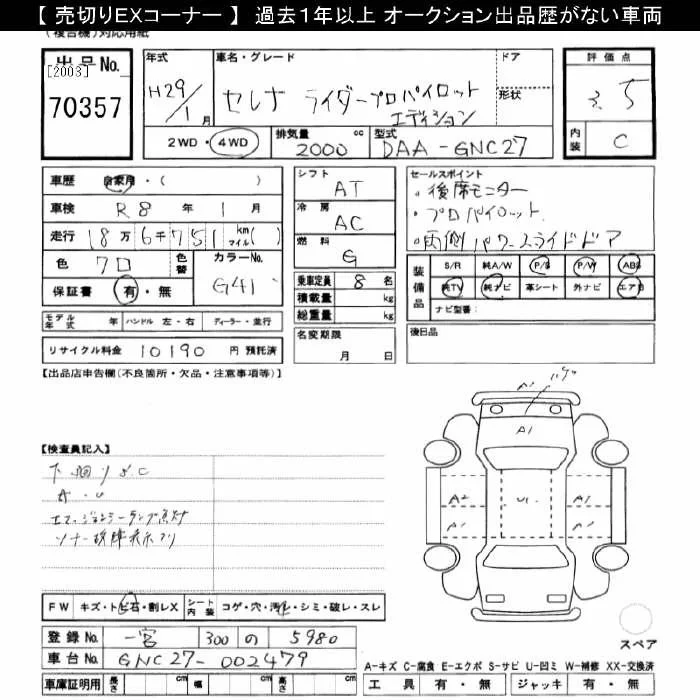 【 売切りEXコーナー 】 過去1年以上 オークション出品歴がない車両
(複合機)対応用紙
出品No.
[2003]
70357
年式
H29/1月
車名・グレード
セレナ ライダープロパイロット
エディション
ドア
形状
評価点
3.5
内装
C
2WD・4WD
排気量
2000 cc
型式
DAA-GNC27
車歴 自家用・( )
車検 R8年 1月
走行 18万6千751 km マイル( )
色 クロ
色替
カラーNo.
G41
保証書 有・無
シフト
AT
冷房
AC
燃料
G
乗車定員 8名
積載量 kg
総重量 kg
名変期限
月 日
セールスポイント
・後席モニター
・プロパイロット
・両側パワースライドドア
装備品
S/R 純A/W P/S P/W ABS
純TV 純ナビ 革シート 外ナビ エアB
ナビ型番:
後日品
モデル年式 年 ハンドル 左・右 ディーラー・並行
リサイクル料金 10190 円 預託済
【出品店申告欄(不良箇所・欠品・注意事項等)】
【検査員記入】
下回りS.C
A.U
エマージョンシーランプ点灯
ソナー故障表示アリ
A1
A2
A1
A1
A1
U1
FW キズ・トビ石・割レX
シート内装 コゲ・穴・汚レ・シミ・破レ・スレ
登録No. 一宮 300 の 5980
車台No. GNC27-002479
車庫証明用 長さ cm 幅 cm 高さ cm
スペア
A-キズ C-腐食 E-エクボ S-サビ U-凹ミ W-補修 XX-交換済
工具 有・無 ジャッキ 有・無